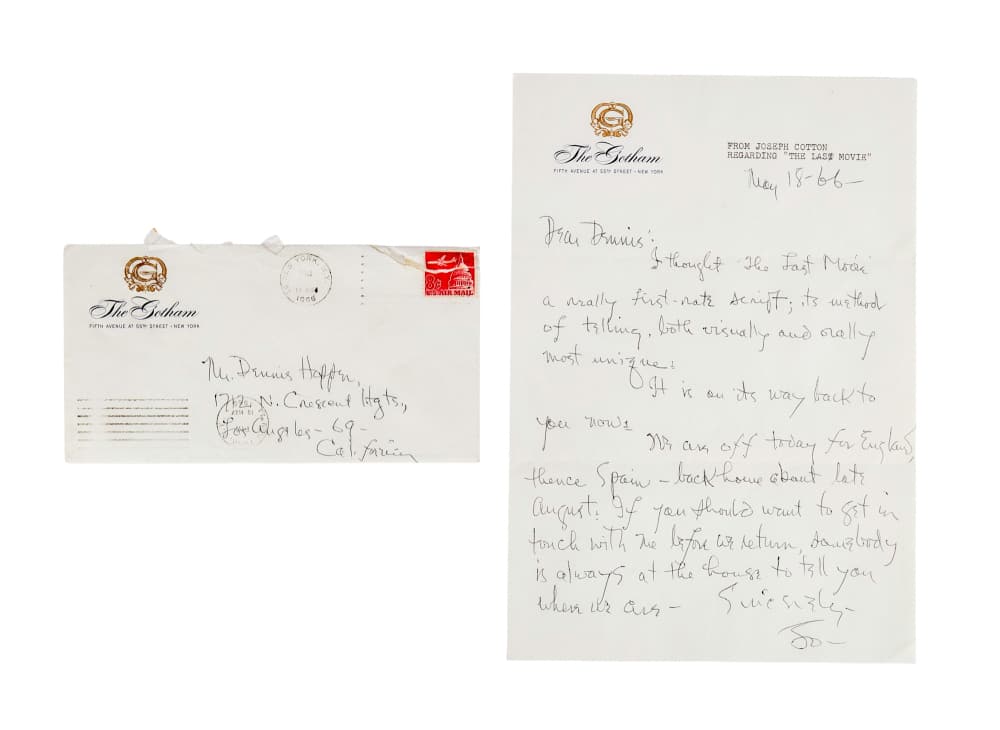 The Gotham
FIFTH AVENUE AT 55TH STREET · NEW YORK
NEW YORK, N.Y.
1966
8¢
U.S. AIR MAIL
Mr. Dennis Hopper,
1712 N. Crescent Hgts.,
Los Angeles - 69 -
California
G
The Gotham
FIFTH AVENUE AT 55TH STREET · NEW YORK
FROM JOSEPH COTTON
REGARDING "THE LAST MOVIE"
May 18-66-
Dear Dennis:
I thought "The Last Movie"
a really first-rate script; its method
of telling, both visually and orally
most unique.
It is on its way back to
you now.
We are off today for England,
thence Spain - back home about late
August. If you should want to get in
touch with me before we return, somebody
is always at the house to tell you
where we are - Sincerely -
Jo -